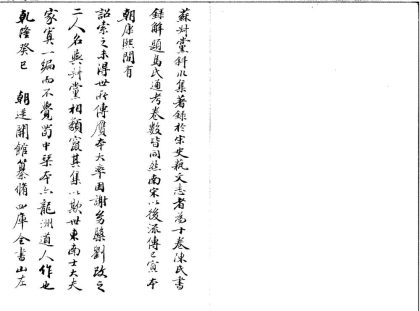 蘇叔黨斜川集著錄於宋史藝文志者為十卷陳氏書
錄解題馬氏通考卷數皆同然南宋以後流傳已寡本
朝康熙間有
詔索之未得世所傳贋本大率因謝幼槃劉改之
二人名與叔黨相類竄其集以欺世東南士大夫
家寘一編而不覺蜀中槧本亦龍洲道人作也
乾隆癸巳 朝廷開館纂脩四庫全書山左